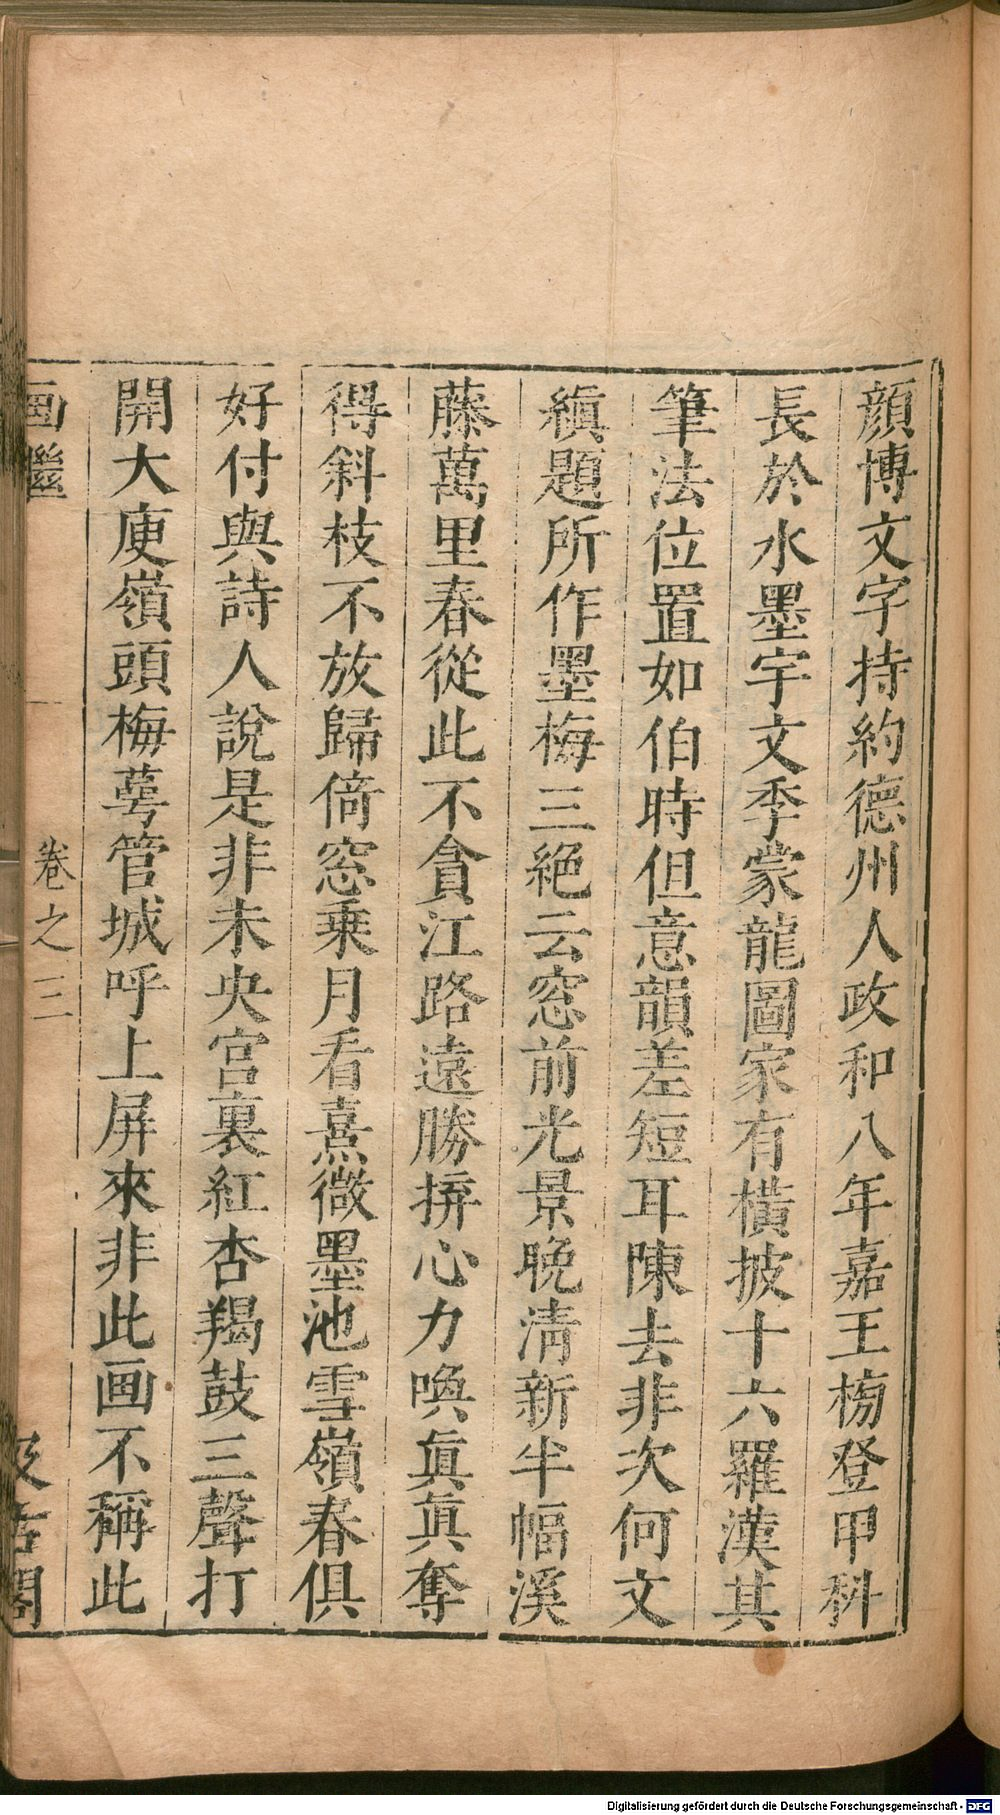 顔博文字持約德州人政和八年嘉王榜登甲科
長於水墨宇文季蒙龍圖家有橫披十六羅漢其
筆法位置如伯時但意韻差短耳陳去非次何文
縝題所作墨梅三絕云窓前光景晚淸新半幅溪
藤萬里春從此不貪江路遠勝拚心力喚眞眞奪
得斜枝不放歸倚窓乗月看熹微墨池雪嶺春俱
好付與詩人說是非未央宫裏紅杏羯鼓三聲打
開大庾嶺頭梅萼管城呼上屏來非此画不稱此
画繼
卷之三
汲古閣
Digitalisierung gefördert durch die Deutsche Forschungsgemeinschaft - DFG